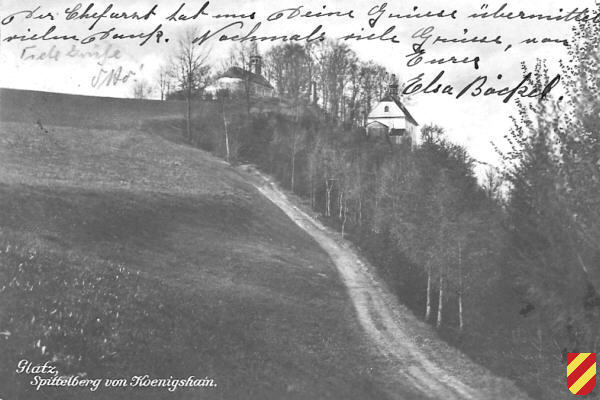 Der Chefarzt hat uns Deine Grüsse übermittelt
vielen Dank. Nochmals viele Grüsse, von
Eurer
Elsa Böckel.
Viele Grüße
Glatz,
Spittelberg von Koenigshain.